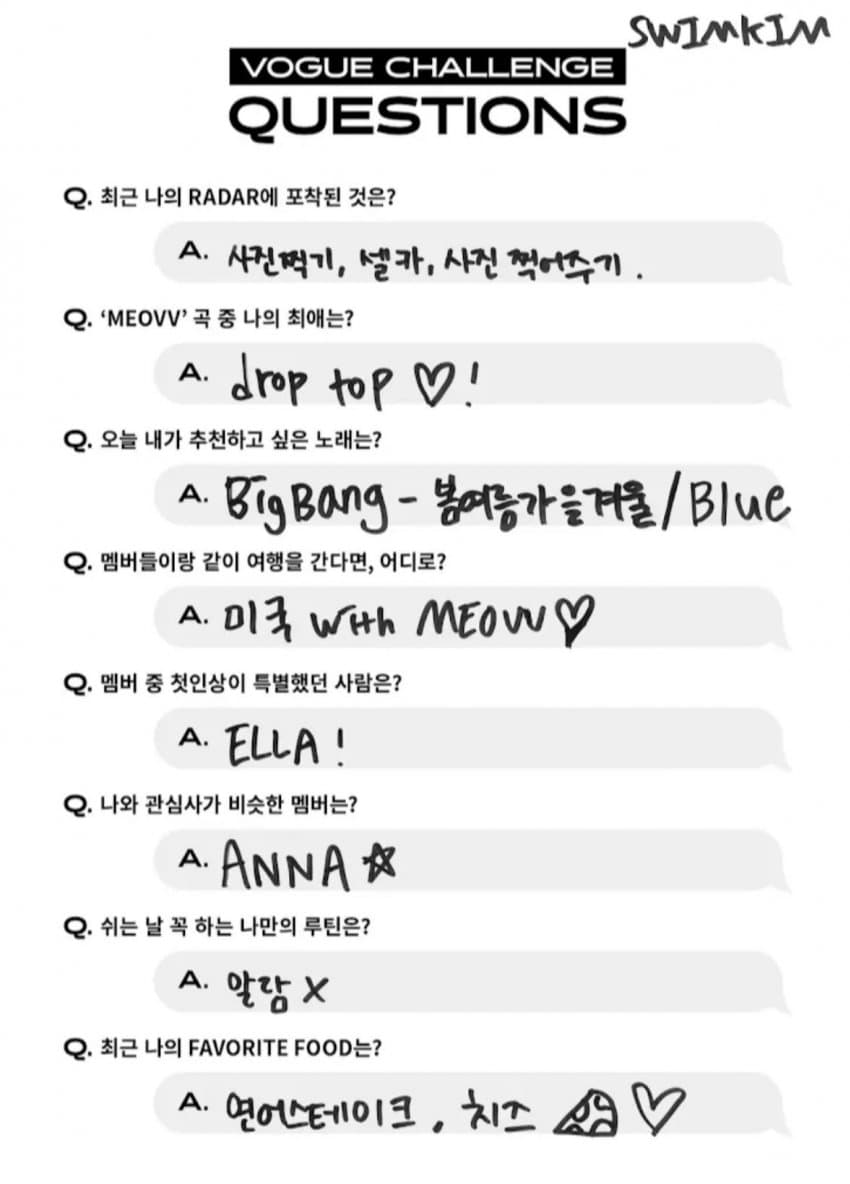 SWIMKIM
VOGUE CHALLENGE
QUESTIONS
Q. 최근 나의 RADAR에 포착된 것은?
A. 사진찍기, 셀카, 사진 찍어주기.
Q. ‘MEOVV’ 곡 중 나의 최애는?
A. drop top ♡!
Q. 오늘 내가 추천하고 싶은 노래는?
A. BigBang - 봄여름가을겨울/Blue
Q. 멤버들이랑 같이 여행을 간다면, 어디로?
A. 미국 with MEOVV♡
Q. 멤버 중 첫인상이 특별했던 사람은?
A. ELLA!
Q. 나와 관심사가 비슷한 멤버는?
A. ANNA ☆
Q. 쉬는 날 꼭 하는 나만의 루틴은?
A. 알람 X
Q. 최근 나의 FAVORITE FOOD는?
A. 연어스테이크, 치즈 ♡